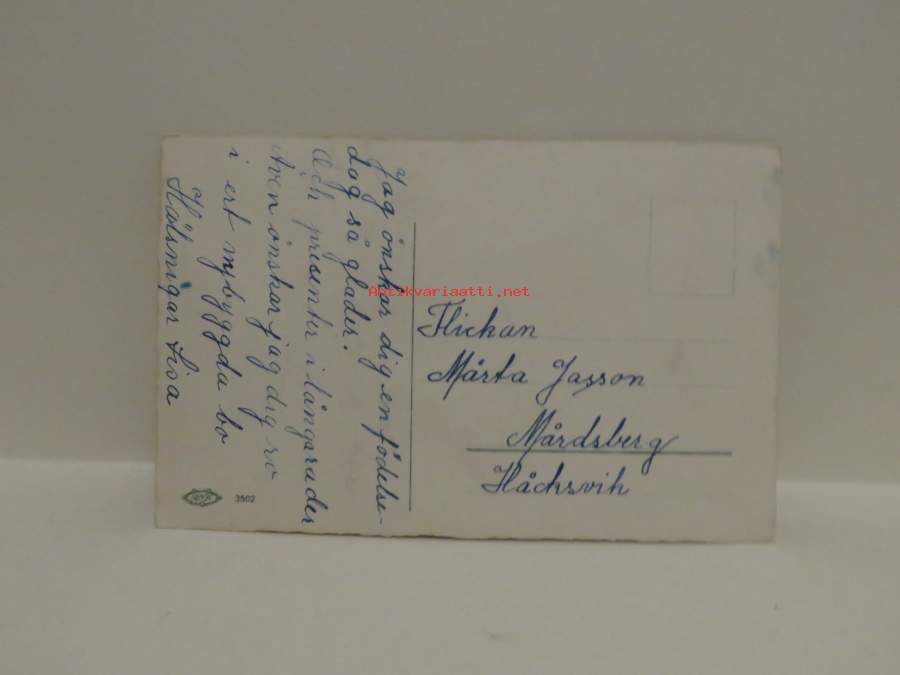 Jag önskar dig en födelse-
dag så glader!
Och presenter i långa rader
Även önskar jag dig ro
i ert nybyggda bo
Hälsningar Lisa
Flickan
Märta Jasson
Mårdsberg
Håcksvik
3502
Antikvariaatti.net